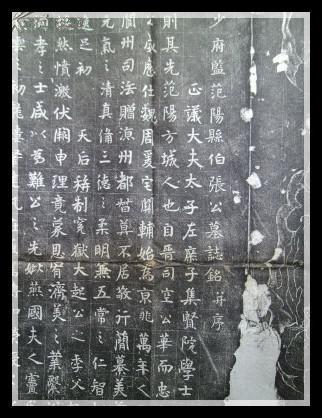 少府監范陽縣伯張公墓誌銘并序
正議大夫太子左庶子集賢院學士
則其先范陽方城人也自晉司空公華而忠
公威應仕魏周爰宅關輔始為京兆萬年人
州司法贈涼州都督算不居敬行簡慕美
元氣之清真備三德之柔明無五常之仁智
初 天后稱制寃獄大起公之季父
然憤激伏闕申理竟蒙恩宥濟美之業繫
孝之士咸以為難公之先妣燕國夫人竇